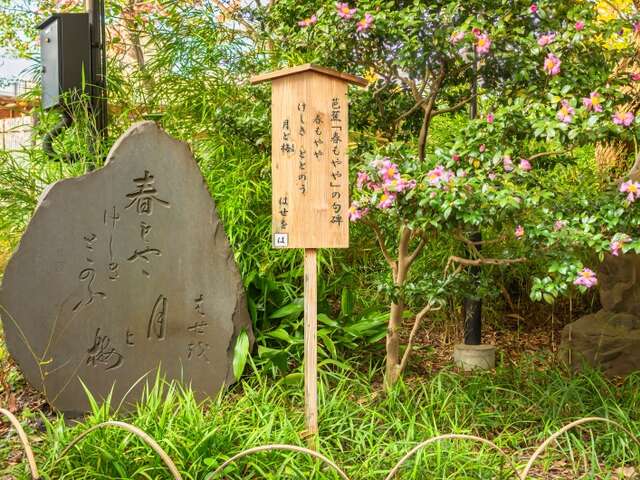 芭蕉「春もやや」の句碑
春もやや
けしき ととのう
月と梅 はせを
は
春もやゝ
けしき
とゝのふ
月と
梅